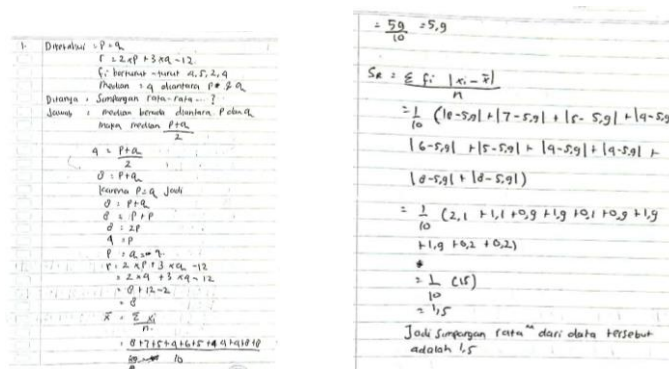 1. Diketahui : P = q
r = 2×P + 3×q - 12
fi berturut-turut 4, 5, 2, 4
Median = 4 diantara P & q
Ditanya : Simpangan rata-rata ... ?
Jawab : median berada diantara P dan q
maka median P+q/2
4 = P+q/2
8 = P+q
Karena P=q Jadi
8 = P+q
8 = P+P
8 = 2P
4 = P
P = q = 4
r = 2×P + 3×q - 12
= 2×4 + 3×4 - 12
= 8 + 12 - 2
= 8
x̄ = Σ xi / n
= 8+7+5+4+6+5+4+4+8+8 / 10
= 59/10 = 5,9
SR = Σ fi |xi - x̄| / n
= 1/10 (|8-5,9| + |7-5,9| + |5-5,9| + |4-5,9|
|6-5,9| + |5-5,9| + |4-5,9| + |4-5,9| +
|8-5,9| + |8-5,9|)
= 1/10 (2,1 + 1,1 + 0,9 + 1,9 + 0,1 + 0,9 + 1,9
+ 1,9 + 0,2 + 0,2)
= 1/10 (15)
= 1,5
Jadi Simpangan rata" dari data tersebut
adalah 1,5